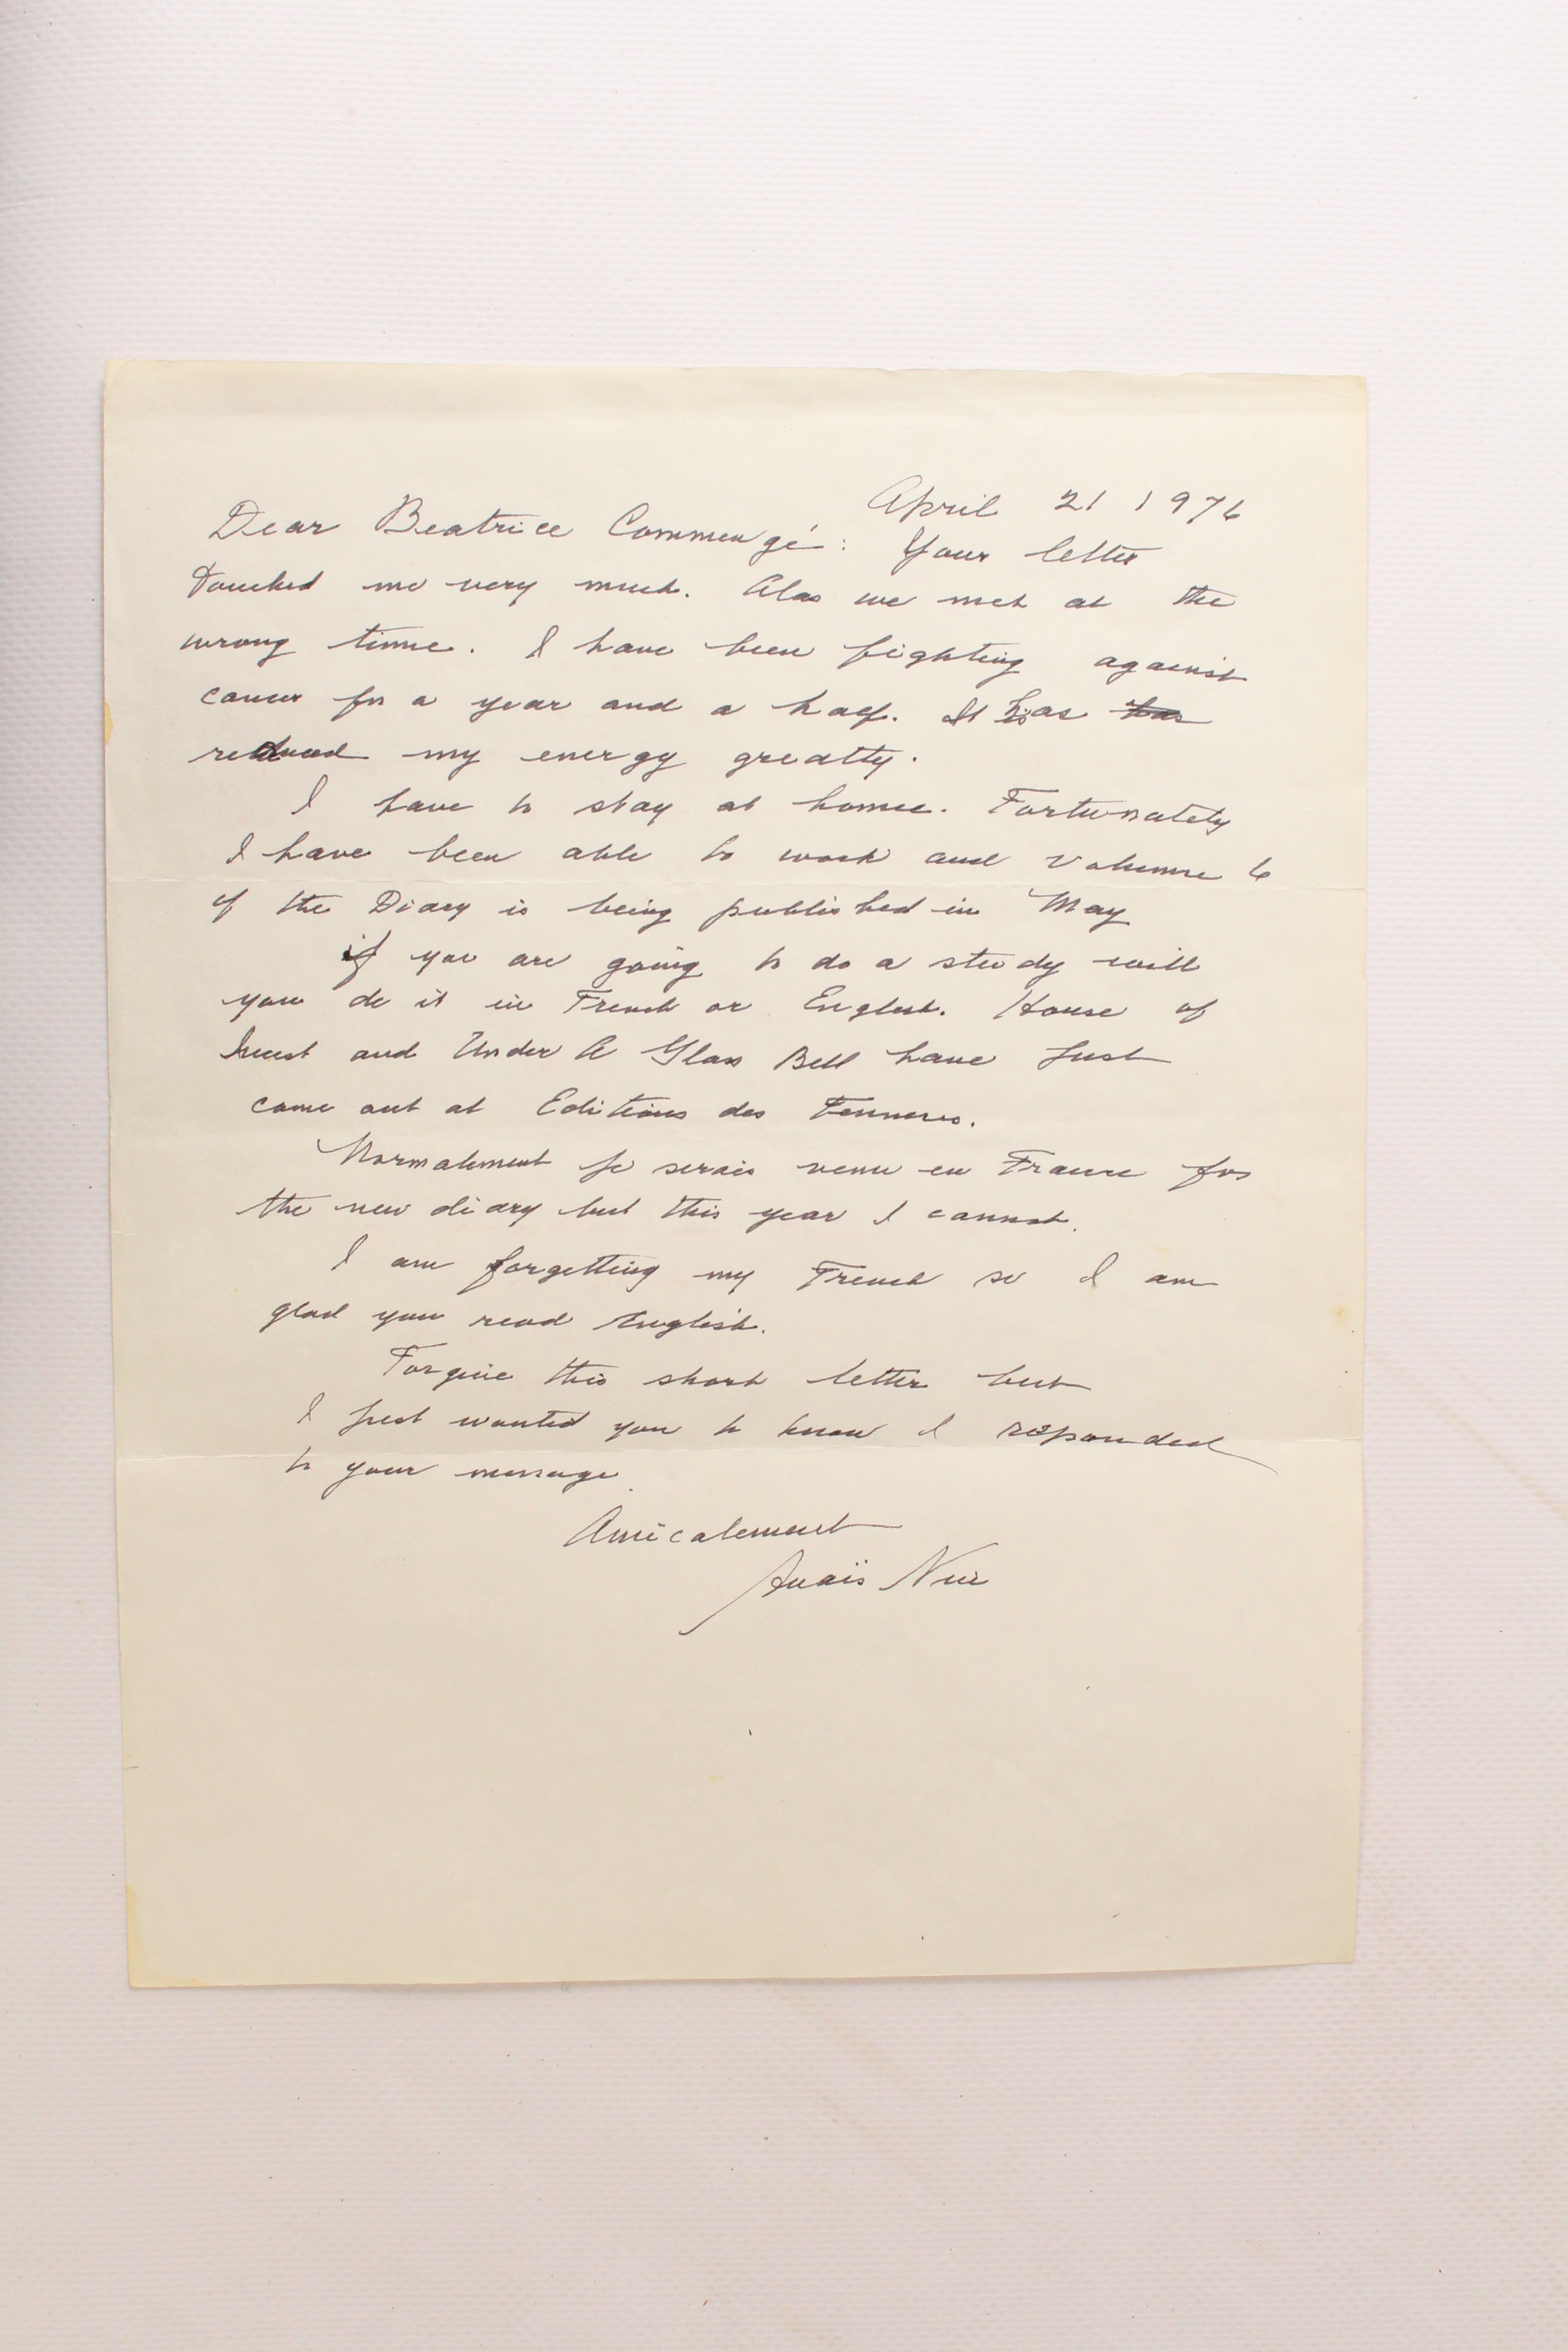 April 21 1976
Dear Beatrice Commengé: Your letter
touched me very much. Alas we met at the
wrong time. I have been fighting against
cancer for a year and a half. It has has
reduced my energy greatly.
I have to stay at home. Fortunately
I have been able to work and Volume 6
of the Diary is being published in May
if you are going to do a study will
you do it in French or English. House of
Incest and Under A Glass Bell have just
come out at Editions des Femmes.
Normalement je serais venu en France for
the new diary but this year I cannot.
I am forgetting my French so I am
glad you read English.
Forgive this short letter but
I just wanted you to know I responded
to your message.
Amicalement
Anaïs Nin